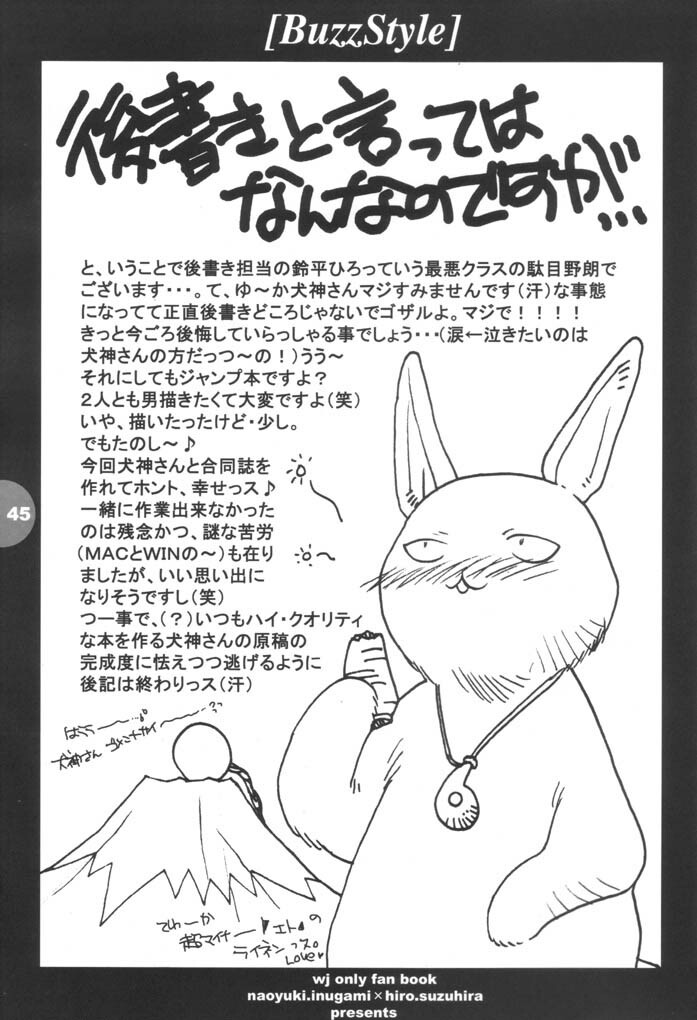 [BuzzStyle]
後書きと言っては
なんなのですが…
と、いうことで後書き担当の鈴平ひろっていう最悪クラスの駄目野朗で
ございます・・・。て、ゆ～か犬神さんマジすみませんです（汗）な事態
になってて正直後書きどころじゃないでゴザルよ。マジで！！！！
きっと今ごろ後悔していらっしゃる事でしょう・・・（涙←泣きたいのは
犬神さんの方だっつ～の！）うう～
それにしてもジャンプ本ですよ？
２人とも男描きたくて大変ですよ（笑）
いや、描いたったけど・少し。
でもたのし～♪
今回犬神さんと合同誌を
作れてホント、幸せっス♪
一緒に作業出来なかった
のは残念かつ、謎な苦労
（MACとWINの～）も在り
ましたが、いい思い出に
なりそうですし（笑）
つー事で、（？）いつもハイ・クオリティ
な本を作る犬神さんの原稿の
完成度に怯えつつ逃げるように
後記は終わりっス（汗）
犬神さん ゴメンナサイ～??
てゆーか
超マイナー
エトの
ライネンっス。
Love
45
wj only fan book
naoyuki.inugami×hiro.suzuhira
presents